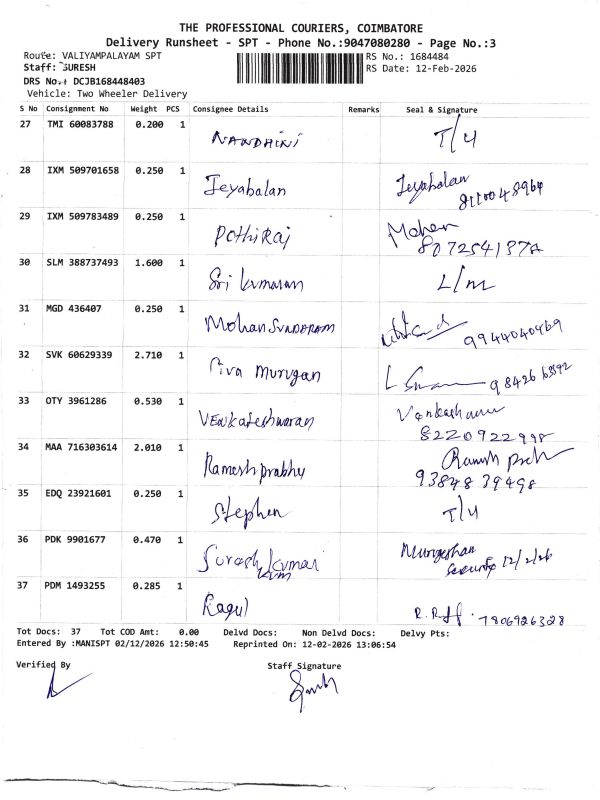 THE PROFESSIONAL COURIERS, COIMBATORE
Delivery Runsheet - SPT - Phone No.:9047080280 - Page No.:3
Route: VALIYAMPALAYAM SPT RS No.: 1684484
Staff: SURESH RS Date: 12-Feb-2026
DRS No.: DCJB168448403
Vehicle: Two Wheeler Delivery
S No Consignment No Weight PCS Consignee Details Remarks Seal & Signature
27 TMI 60083788 0.200 1 NANDHINI T/4
28 IXM 509701658 0.250 1 Jeyabalan Jeyabalan
29 IXM 509783489 0.250 1 Pothiraj Mohan
30 SLM 388737493 1.600 1 Sri kumaran L/m
31 MGD 436407 0.250 1 Mohan SUNDARAM 9944040469
32 SVK 60629339 2.710 1 Siva murugan
33 OTY 3961286 0.530 1 VENkateshwaran
8220922998
34 MAA 716303614 2.010 1 Ramesh prabhu
9384839498
35 EDQ 23921601 0.250 1 Stephen T/4
36 PDK 9901677 0.470 1 Suresh kumar
security 12/2/26
37 PDM 1493255 0.285 1 Ragul 7806926328
Tot Docs: 37 Tot COD Amt: 0.00 Delvd Docs: Non Delvd Docs: Delvy Pts:
Entered By :MANISPT 02/12/2026 12:50:45 Reprinted On: 12-02-2026 13:06:54
Verified By Staff Signature